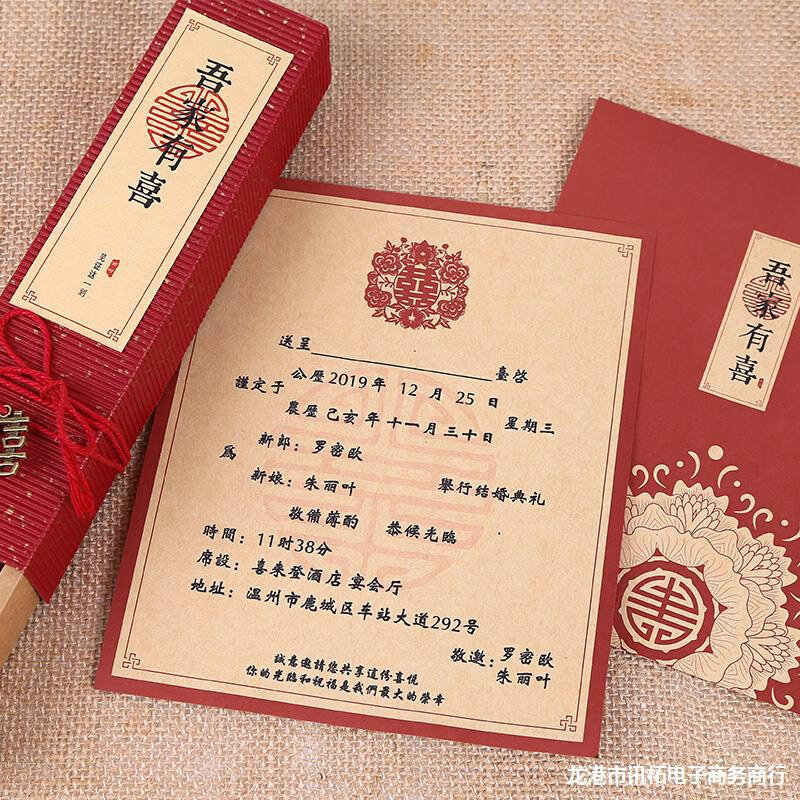 吾家有喜
见证这一刻
囍
送呈____________________臺啓
謹定于
公歷2019年 12 月 25 日
農歷己亥年十一月三十日
星期三
爲
新郎：罗密欧
新娘：朱丽叶
舉行结婚典礼
敬備薄酌 恭候光臨
時間：11时38分
席設：喜来登酒店 宴会厅
地址：温州市鹿城区车站大道292号
敬邀：罗密欧
朱丽叶
誠意邀請您共享這份喜悅
你的光臨和祝福是我們最大的榮幸
吾家有喜
龙港市讯柘电子商务商行